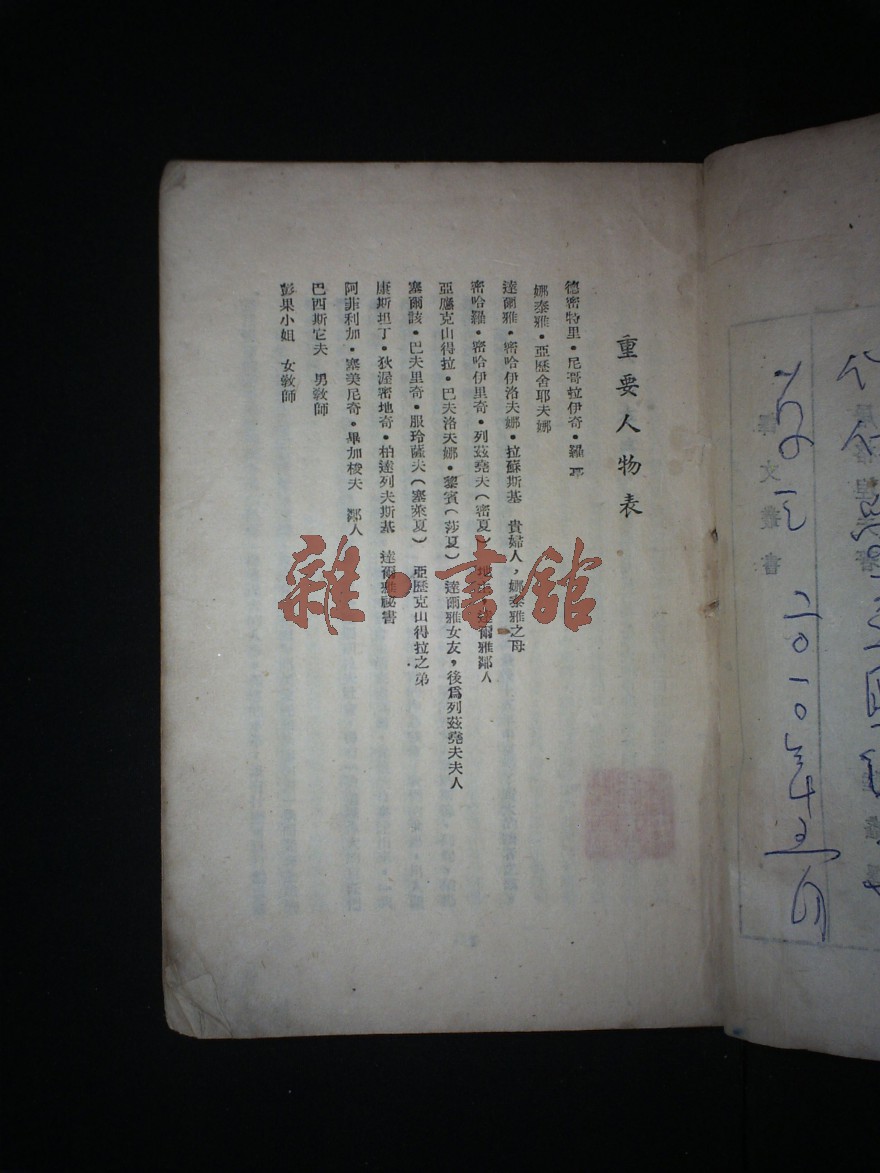 重要人物表
德密特里・尼哥拉伊奇・羅亭
娜泰雅・亞歷舍耶夫娜
達爾雅・密哈伊洛夫娜・拉蘇斯基 貴婦人，娜泰雅之母
密哈羅・密哈伊里奇・列茲堯夫（密夏） 地主，達爾雅鄰人
亞歷克山得拉・巴夫洛夫娜・黎賓（莎夏） 達爾雅女友，後爲列茲堯夫夫人
塞爾該・巴夫里奇・服玲薩夫（塞萊夏） 亞歷克山得拉之弟
康斯坦丁・狄渥密地奇・柏達列夫斯基 達爾雅祕書
阿菲利加・塞美尼奇・畢加梭夫 鄰人
巴西斯它夫 男教師
彭果小姐 女教師
雜・書館
文叢書
二〇一〇年五月